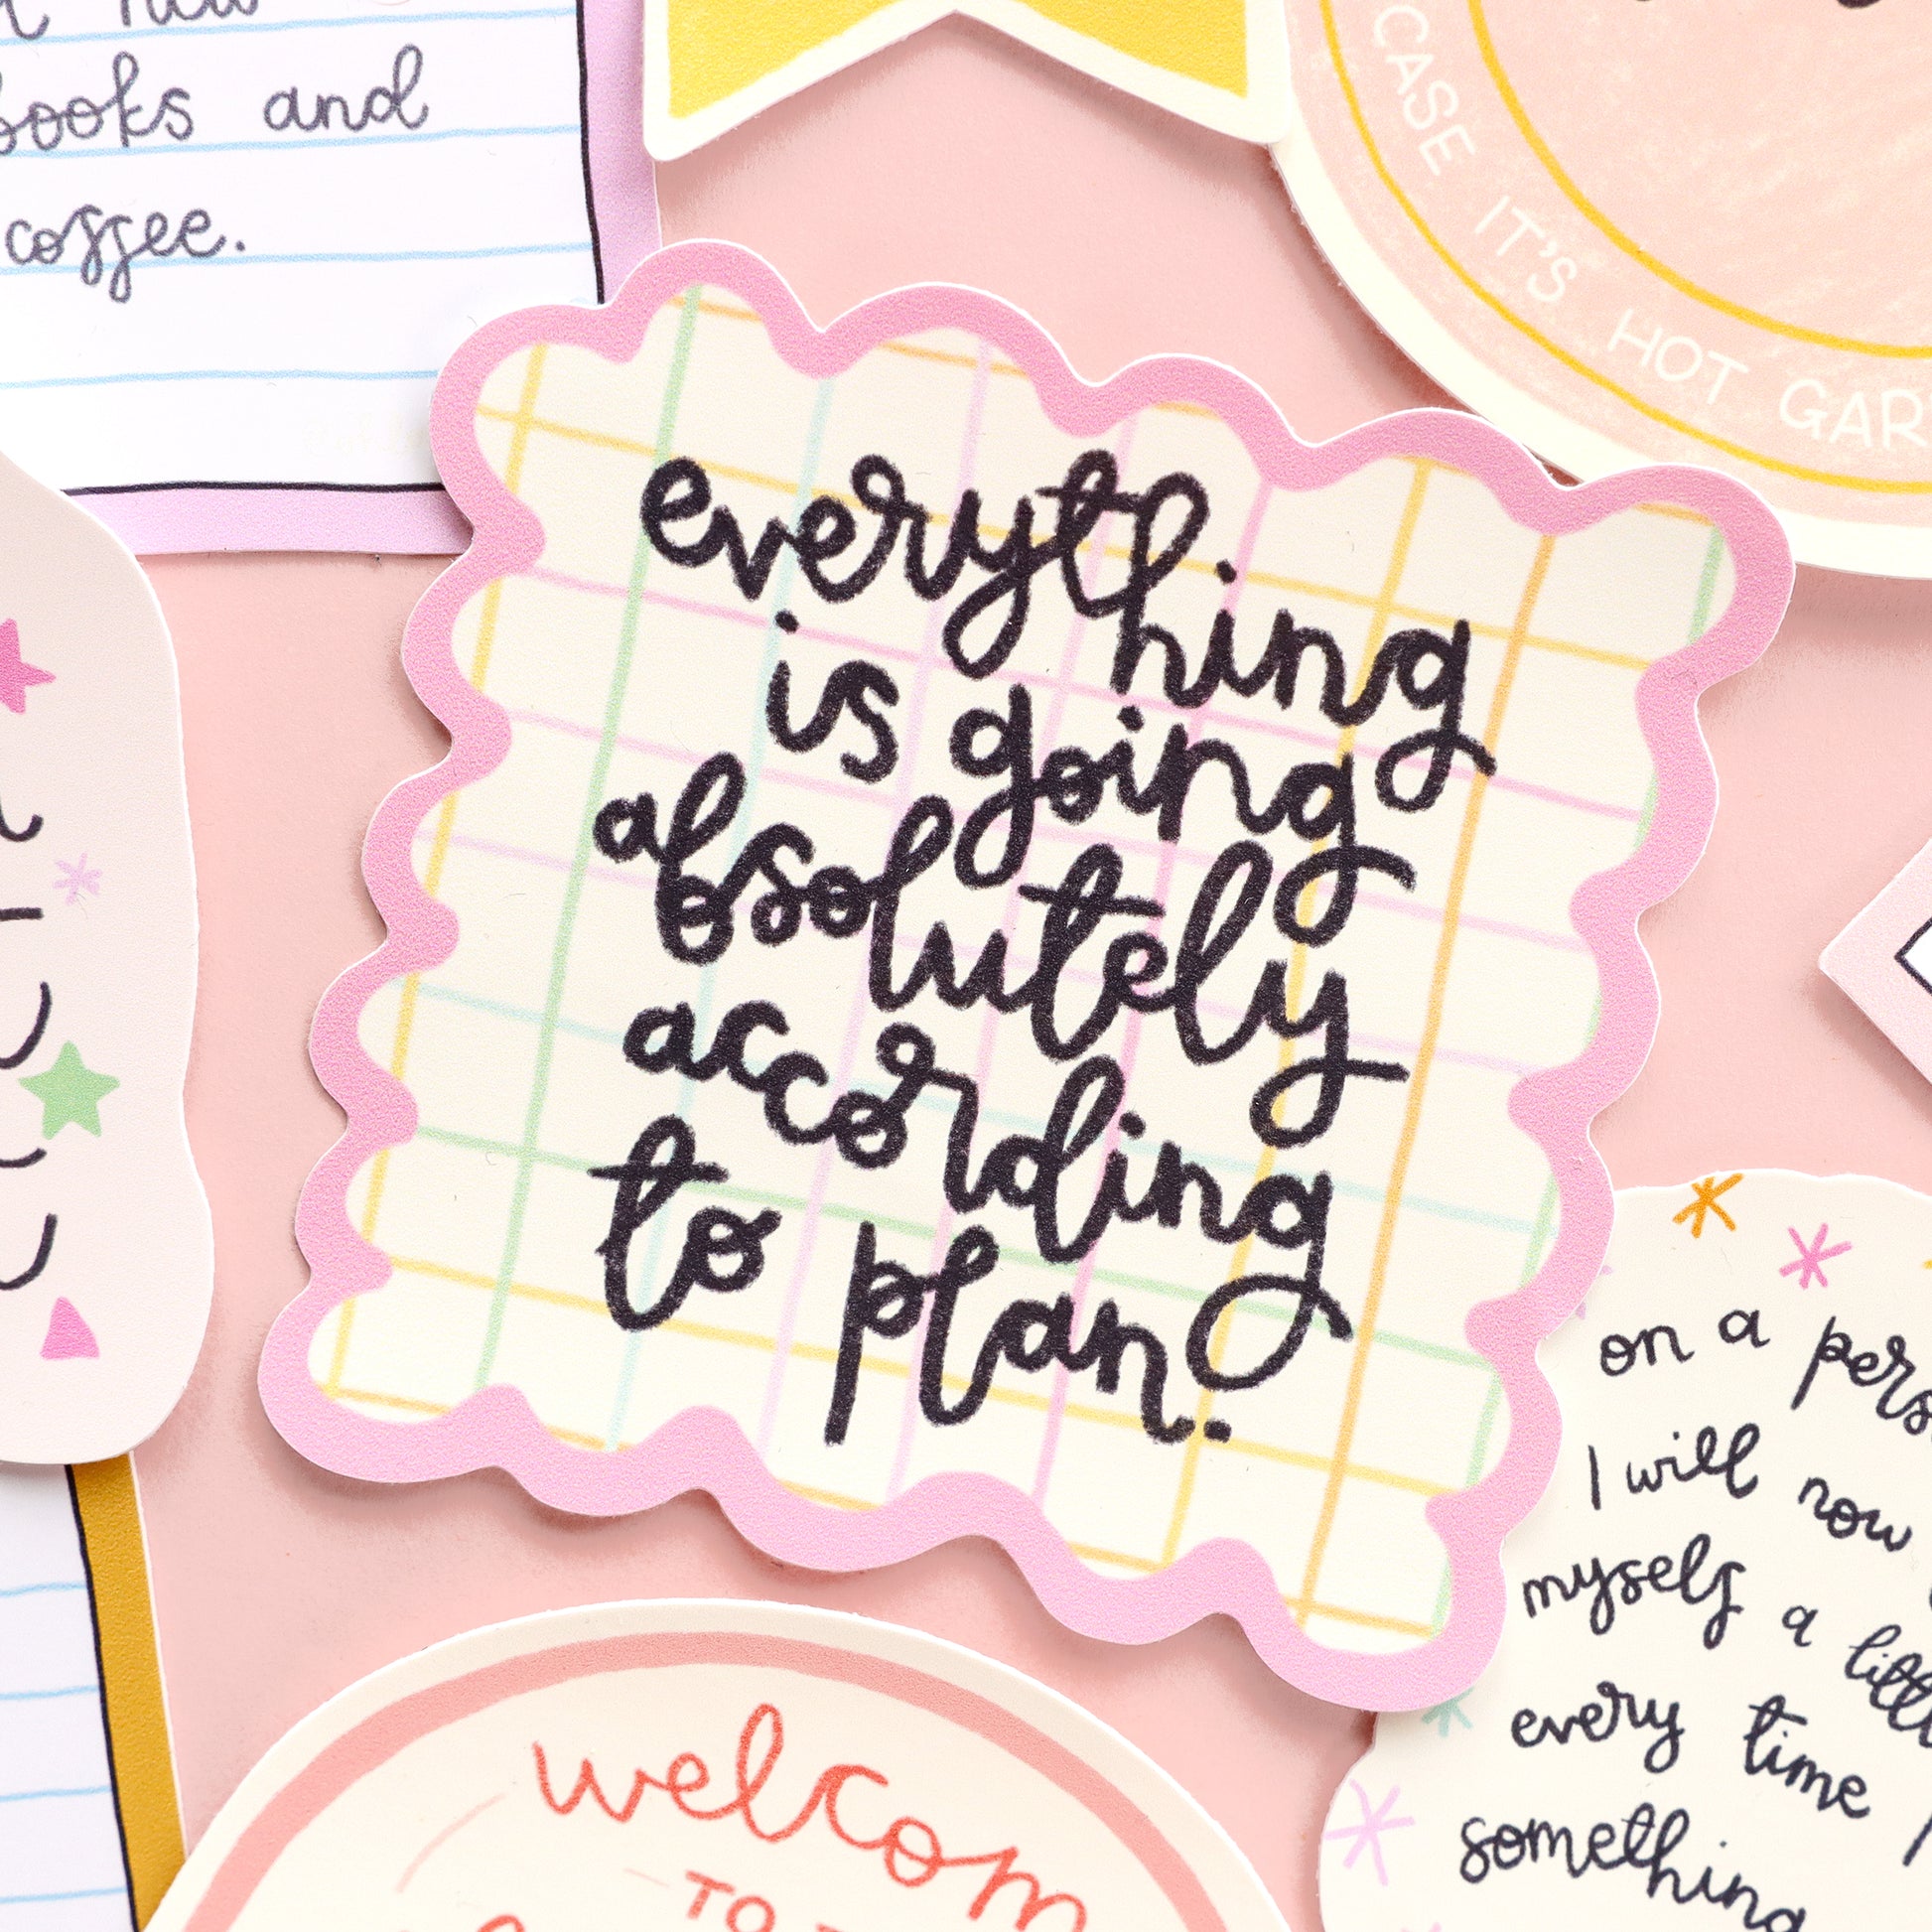 new
books and
coffee.
CASE IT'S HOT
everything
is going
absolutely
according
to plan.
on a
I will now
myself a
every time
something
TO